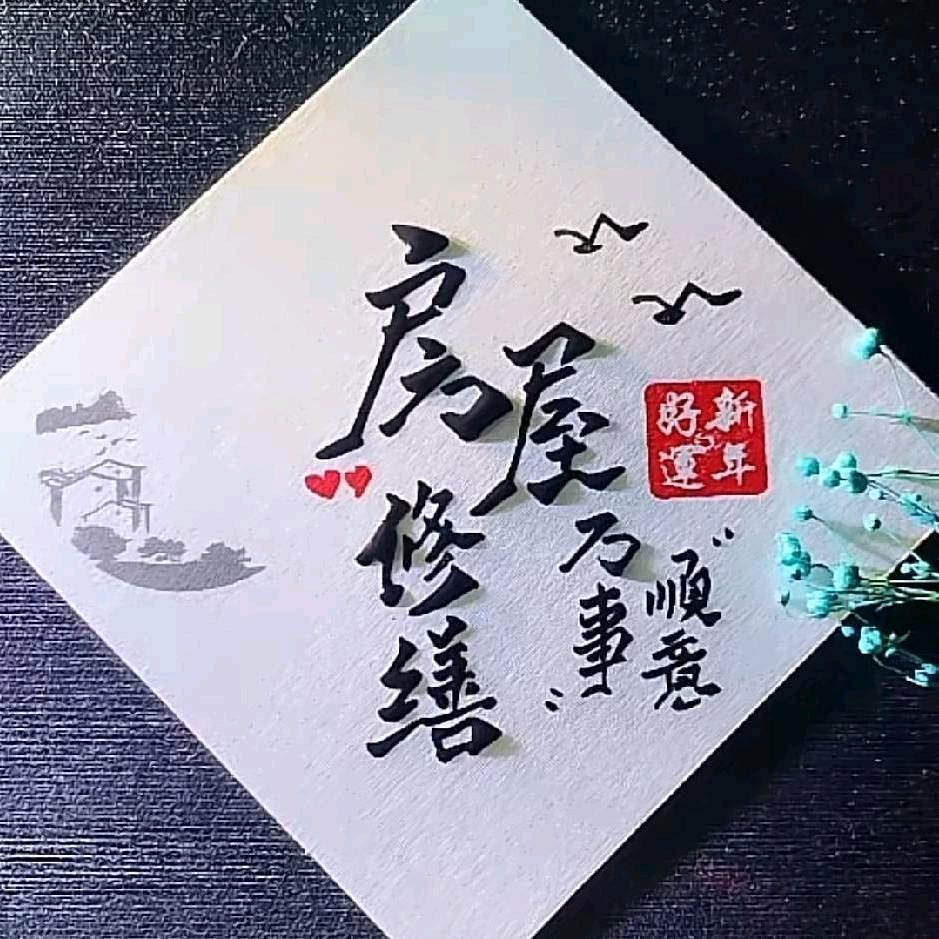 房屋
修缮
万事
顺意
新年
好運